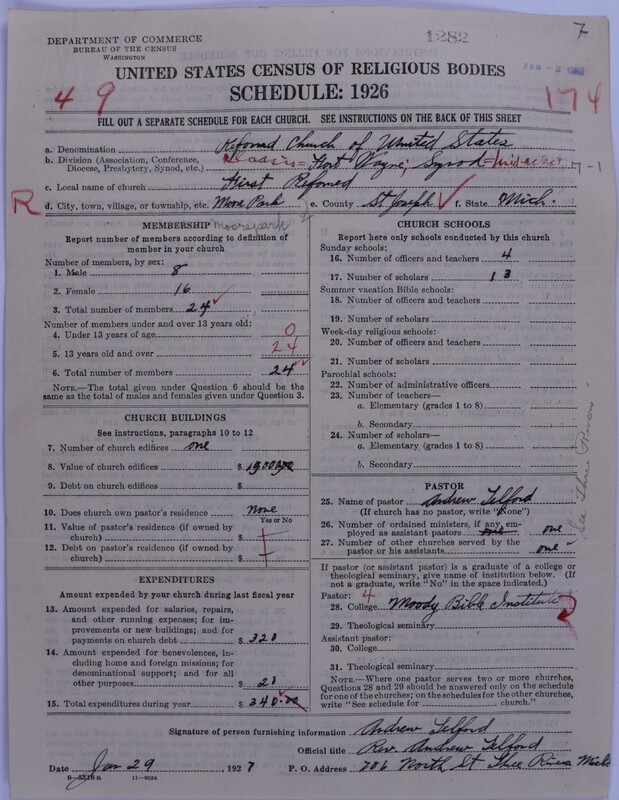 DEPARTMENT OF COMMERCE
BUREAU OF THE CENSUS
WASHINGTON
1282
7
UNITED STATES CENSUS OF RELIGIOUS BODIES
SCHEDULE: 1926
49
174
FILL OUT A SEPARATE SCHEDULE FOR EACH CHURCH. SEE INSTRUCTIONS ON THE BACK OF THIS SHEET
a. Denomination Reformed Church of United States
b. Division (Association, Conference, Diocese, Presbytery, Synod, etc.) Classis= Fort Wayne; Synod=mid-west 7-1
c. Local name of church First Reformed
R d. City, town, village, or township, etc. Moore Park e. County St Joseph f. State Mich.
Moorepark
MEMBERSHIP
Report number of members according to definition of member in your church
Number of members, by sex:
1. Male 8
2. Female 16
3. Total number of members 24
Number of members under and over 13 years old:
4. Under 13 years of age 0
5. 13 years old and over 24
6. Total number of members 24
NOTE.—The total given under Question 6 should be the same as the total of males and females given under Question 3.
CHURCH BUILDINGS
See instructions, paragraphs 10 to 12
7. Number of church edifices one
8. Value of church edifices $
9. Debt on church edifices $
10. Does church own pastor's residence? None
Yes or No
11. Value of pastor's residence (if owned by church) $
12. Debt on pastor's residence (if owned by church) $
EXPENDITURES
Amount expended by your church during last fiscal year
13. Amount expended for salaries, repairs, and other running expenses; for improvements or new buildings; and for payments on church debt $ 320
14. Amount expended for benevolences, including home and foreign missions; for denominational support; and for all other purposes $ 20
15. Total expenditures during year $ 340.00
CHURCH SCHOOLS
Report here only schools conducted by this church
Sunday schools:
16. Number of officers and teachers 4
17. Number of scholars 13
Summer vacation Bible schools:
18. Number of officers and teachers
19. Number of scholars
Week-day religious schools:
20. Number of officers and teachers
21. Number of scholars
Parochial schools:
22. Number of administrative officers
23. Number of teachers—
a. Elementary (grades 1 to 8)
b. Secondary
24. Number of scholars—
a. Elementary (grades 1 to 8)
b. Secondary
See Three Rivers
PASTOR
25. Name of pastor Andrew Telford
(If church has no pastor, write "None")
26. Number of ordained ministers, if any, employed as assistant pastors one
27. Number of other churches served by the pastor or his assistants one
If pastor (or assistant pastor) is a graduate of a college or theological seminary, give name of institution below. (If not a graduate, write "No" in the space indicated.)
Pastor: 4
28. College Moody Bible Institute
29. Theological seminary
Assistant pastor:
30. College
31. Theological seminary
NOTE.—Where one pastor serves two or more churches, Questions 28 and 29 should be answered only on the schedule for one of the churches; on the schedules for the other churches, write "See schedule for church."
Signature of person furnishing information Andrew Telford
Official title Rev. Andrew Telford
Date Jan 29, 1927 P. O. Address 706 North St Three Rivers Mich
11—9034